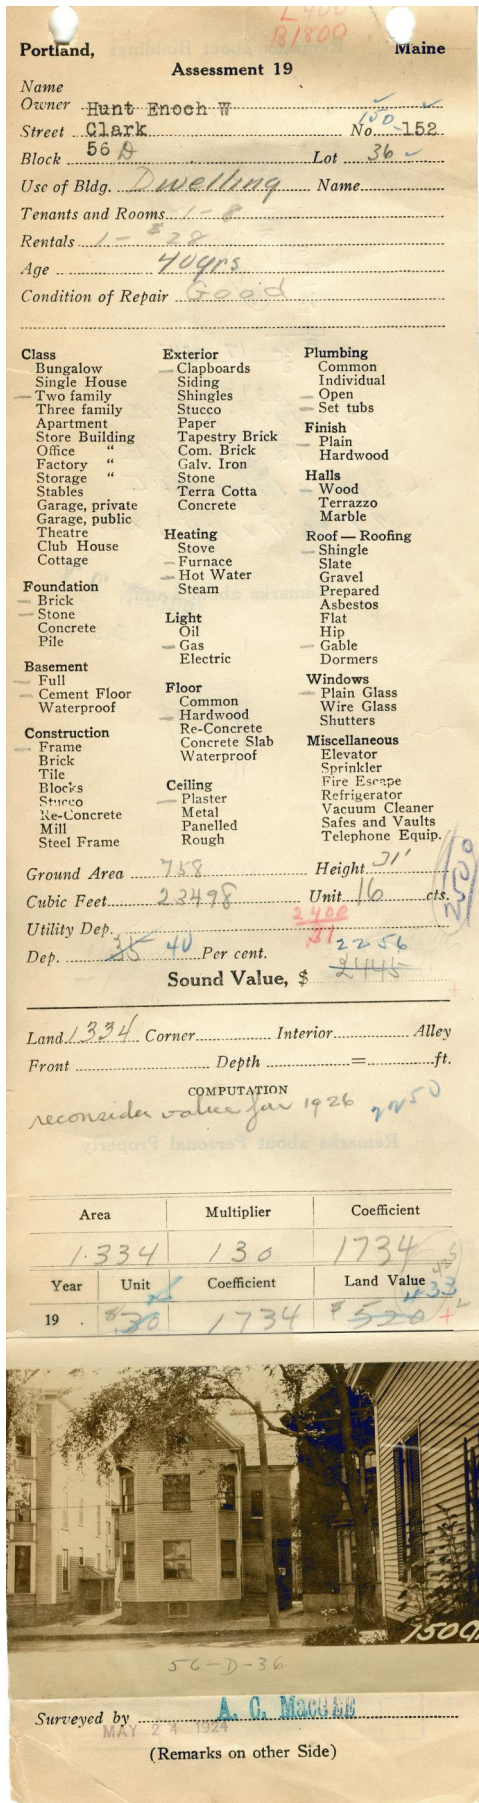 L 400
B 1800
Portland, Maine
Assessment 19
Name
Owner Hunt Enoch W
Street Clark No. 150-152
Block 56 D Lot 36
Use of Bldg. Dwelling Name
Tenants and Rooms 1-8
Rentals 1-$28
Age 40yrs
Condition of Repair Good
Class
Bungalow
Single House
Two family
Three family
Apartment
Store Building
Office "
Factory "
Storage "
Stables
Garage, private
Garage, public
Theatre
Club House
Cottage
Foundation
Brick
Stone
Concrete
Pile
Basement
Full
Cement Floor
Waterproof
Construction
Frame
Brick
Tile
Blocks
Stucco
Re-Concrete
Mill
Steel Frame
Exterior
Clapboards
Siding
Shingles
Stucco
Paper
Tapestry Brick
Com. Brick
Galv. Iron
Stone
Terra Cotta
Concrete
Heating
Stove
Furnace
Hot Water
Steam
Light
Oil
Gas
Electric
Floor
Common
Hardwood
Re-Concrete
Concrete Slab
Waterproof
Ceiling
Plaster
Metal
Panelled
Rough
Plumbing
Common
Individual
Open
Set tubs
Finish
Plain
Hardwood
Halls
Wood
Terrazzo
Marble
Roof — Roofing
Shingle
Slate
Gravel
Prepared
Asbestos
Flat
Hip
Gable
Dormers
Windows
Plain Glass
Wire Glass
Shutters
Miscellaneous
Elevator
Sprinkler
Fire Escape
Refrigerator
Vacuum Cleaner
Safes and Vaults
Telephone Equip.
Ground Area 758 Height 31'
Cubic Feet 23498 Unit 16 cts.
2400
Utility Dep. 31
Dep. 35 40 Per cent. 2256
Sound Value, $ 2445
Land 1334 Corner Interior Alley
Front Depth = ft.
COMPUTATION
reconsider value for 1926 2250
Area Multiplier Coefficient
1.334 130 1734
Year Unit Coefficient Land Value
433
19 $.30 1734 $520
150 Cl
56-D-36
Surveyed by A. C. MacGEE
MAY 24 1924
(Remarks on other Side)